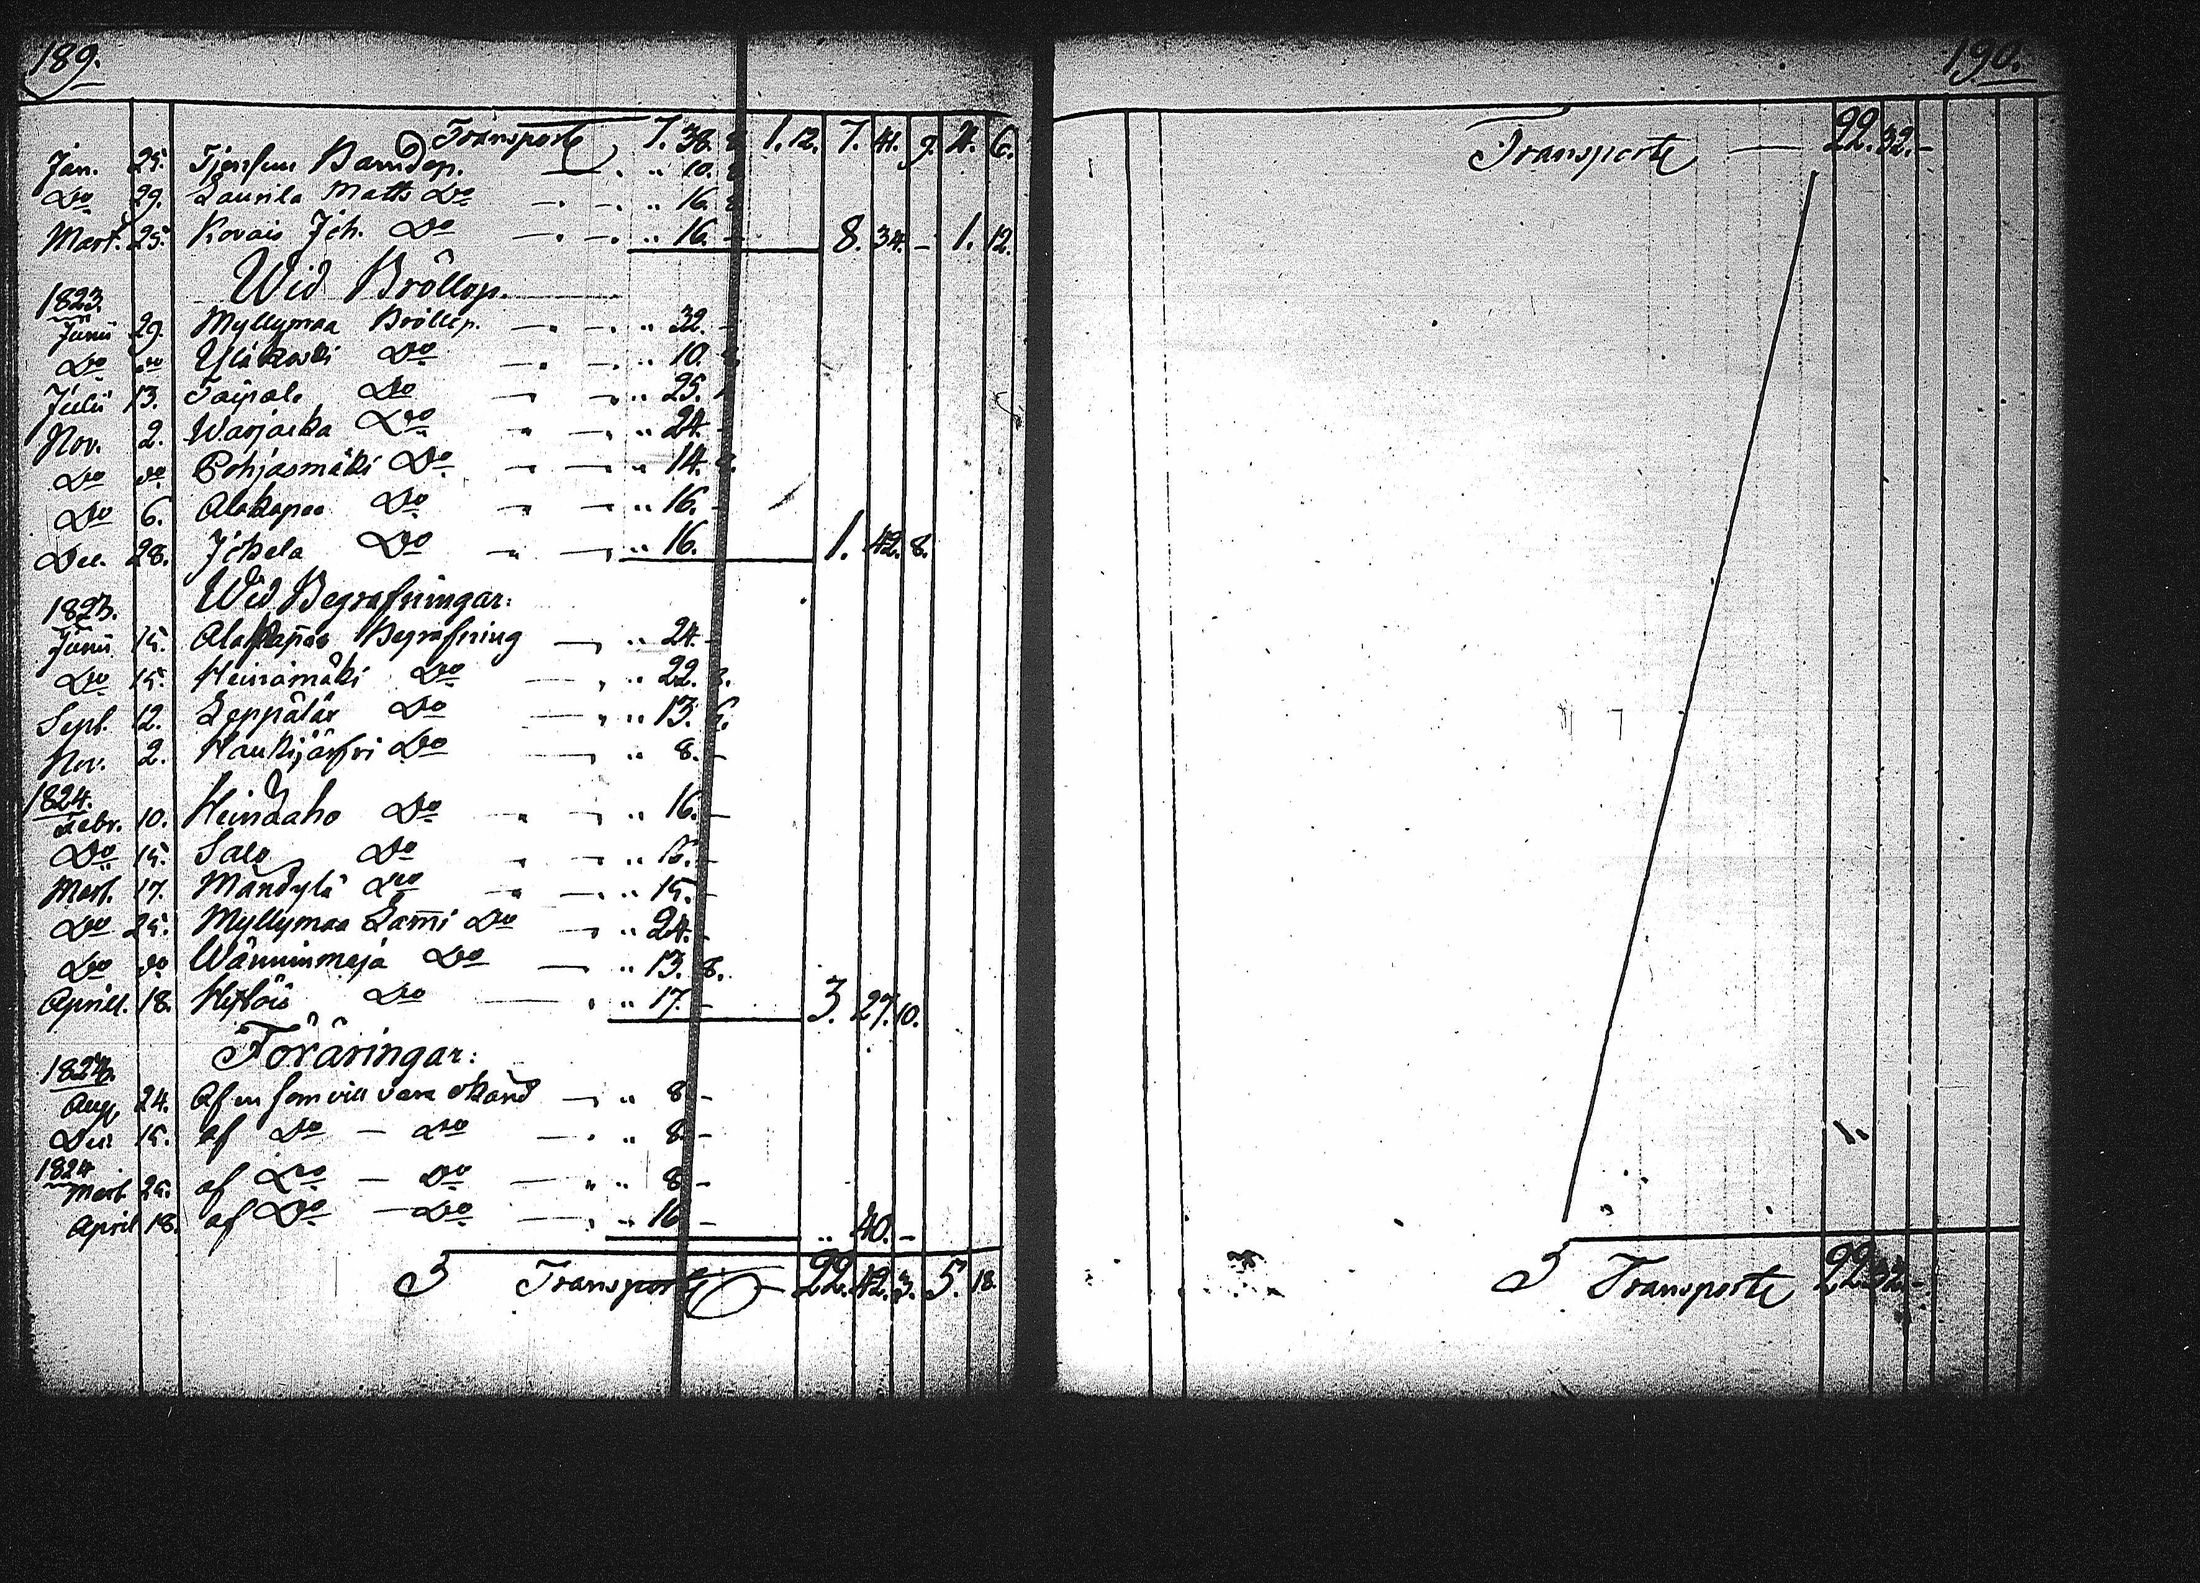 189.
Transporte 7. 38. 1. 12. 7. 41. 9. 4. 6.
Jan. 25. Barndop. " 10.
Do 29. Laurila Matts Do " 16.
Mart. 25. Kovais Joh. Do " 16. – 8. 34. – 1. 12.
Wid Bröllop.
1823
Junii 29. Myllymaa Bröllop. " 32. –
Do do Ylikoski Do " 10.
Julii 13. Taipale Do " 25.
Nov. 2. Warjaska Do " 24. –
Do do Pohjasmäki Do " 14. 8.
Do 6. Alakapee Do " 16. –
Dec. 28. Jokela Do " 16. 1. 42. 8.
Wid Begrafningar:
1823.
Junii 15. Alakapee Begrafning " 24. –
Do 15. Heinämäki Do " 22. 8.
Sept. 12. Leppälä Do " 13. 6.
Nov. 2. Haukijärfvi Do " 8. –
1824.
Febr. 10. Heindaho Do " 16. –
Do 15. Salo Do " 16. –
Mart. 17. Mändylä Do " 15. –
Do 25. Myllymaa Lammi Do " 24. –
Do do Wänninmaja Do " 13. 8.
Aprill. 18. Do " 17. – 3. 27. 10.
Föräringar:
1823.
Aug. 24. Af en som vill vara okänd " 8. –
Dec. 15. af Do – Do " 8. –
1824
Mart. 25. af Do – Do " 8. –
April 18. af Do – Do " 16. – " 40. –
Transporte 22. 42. 3. 5. 18.
190.
Transporte 22. 32. –
1.
Transporte 22. 32. –